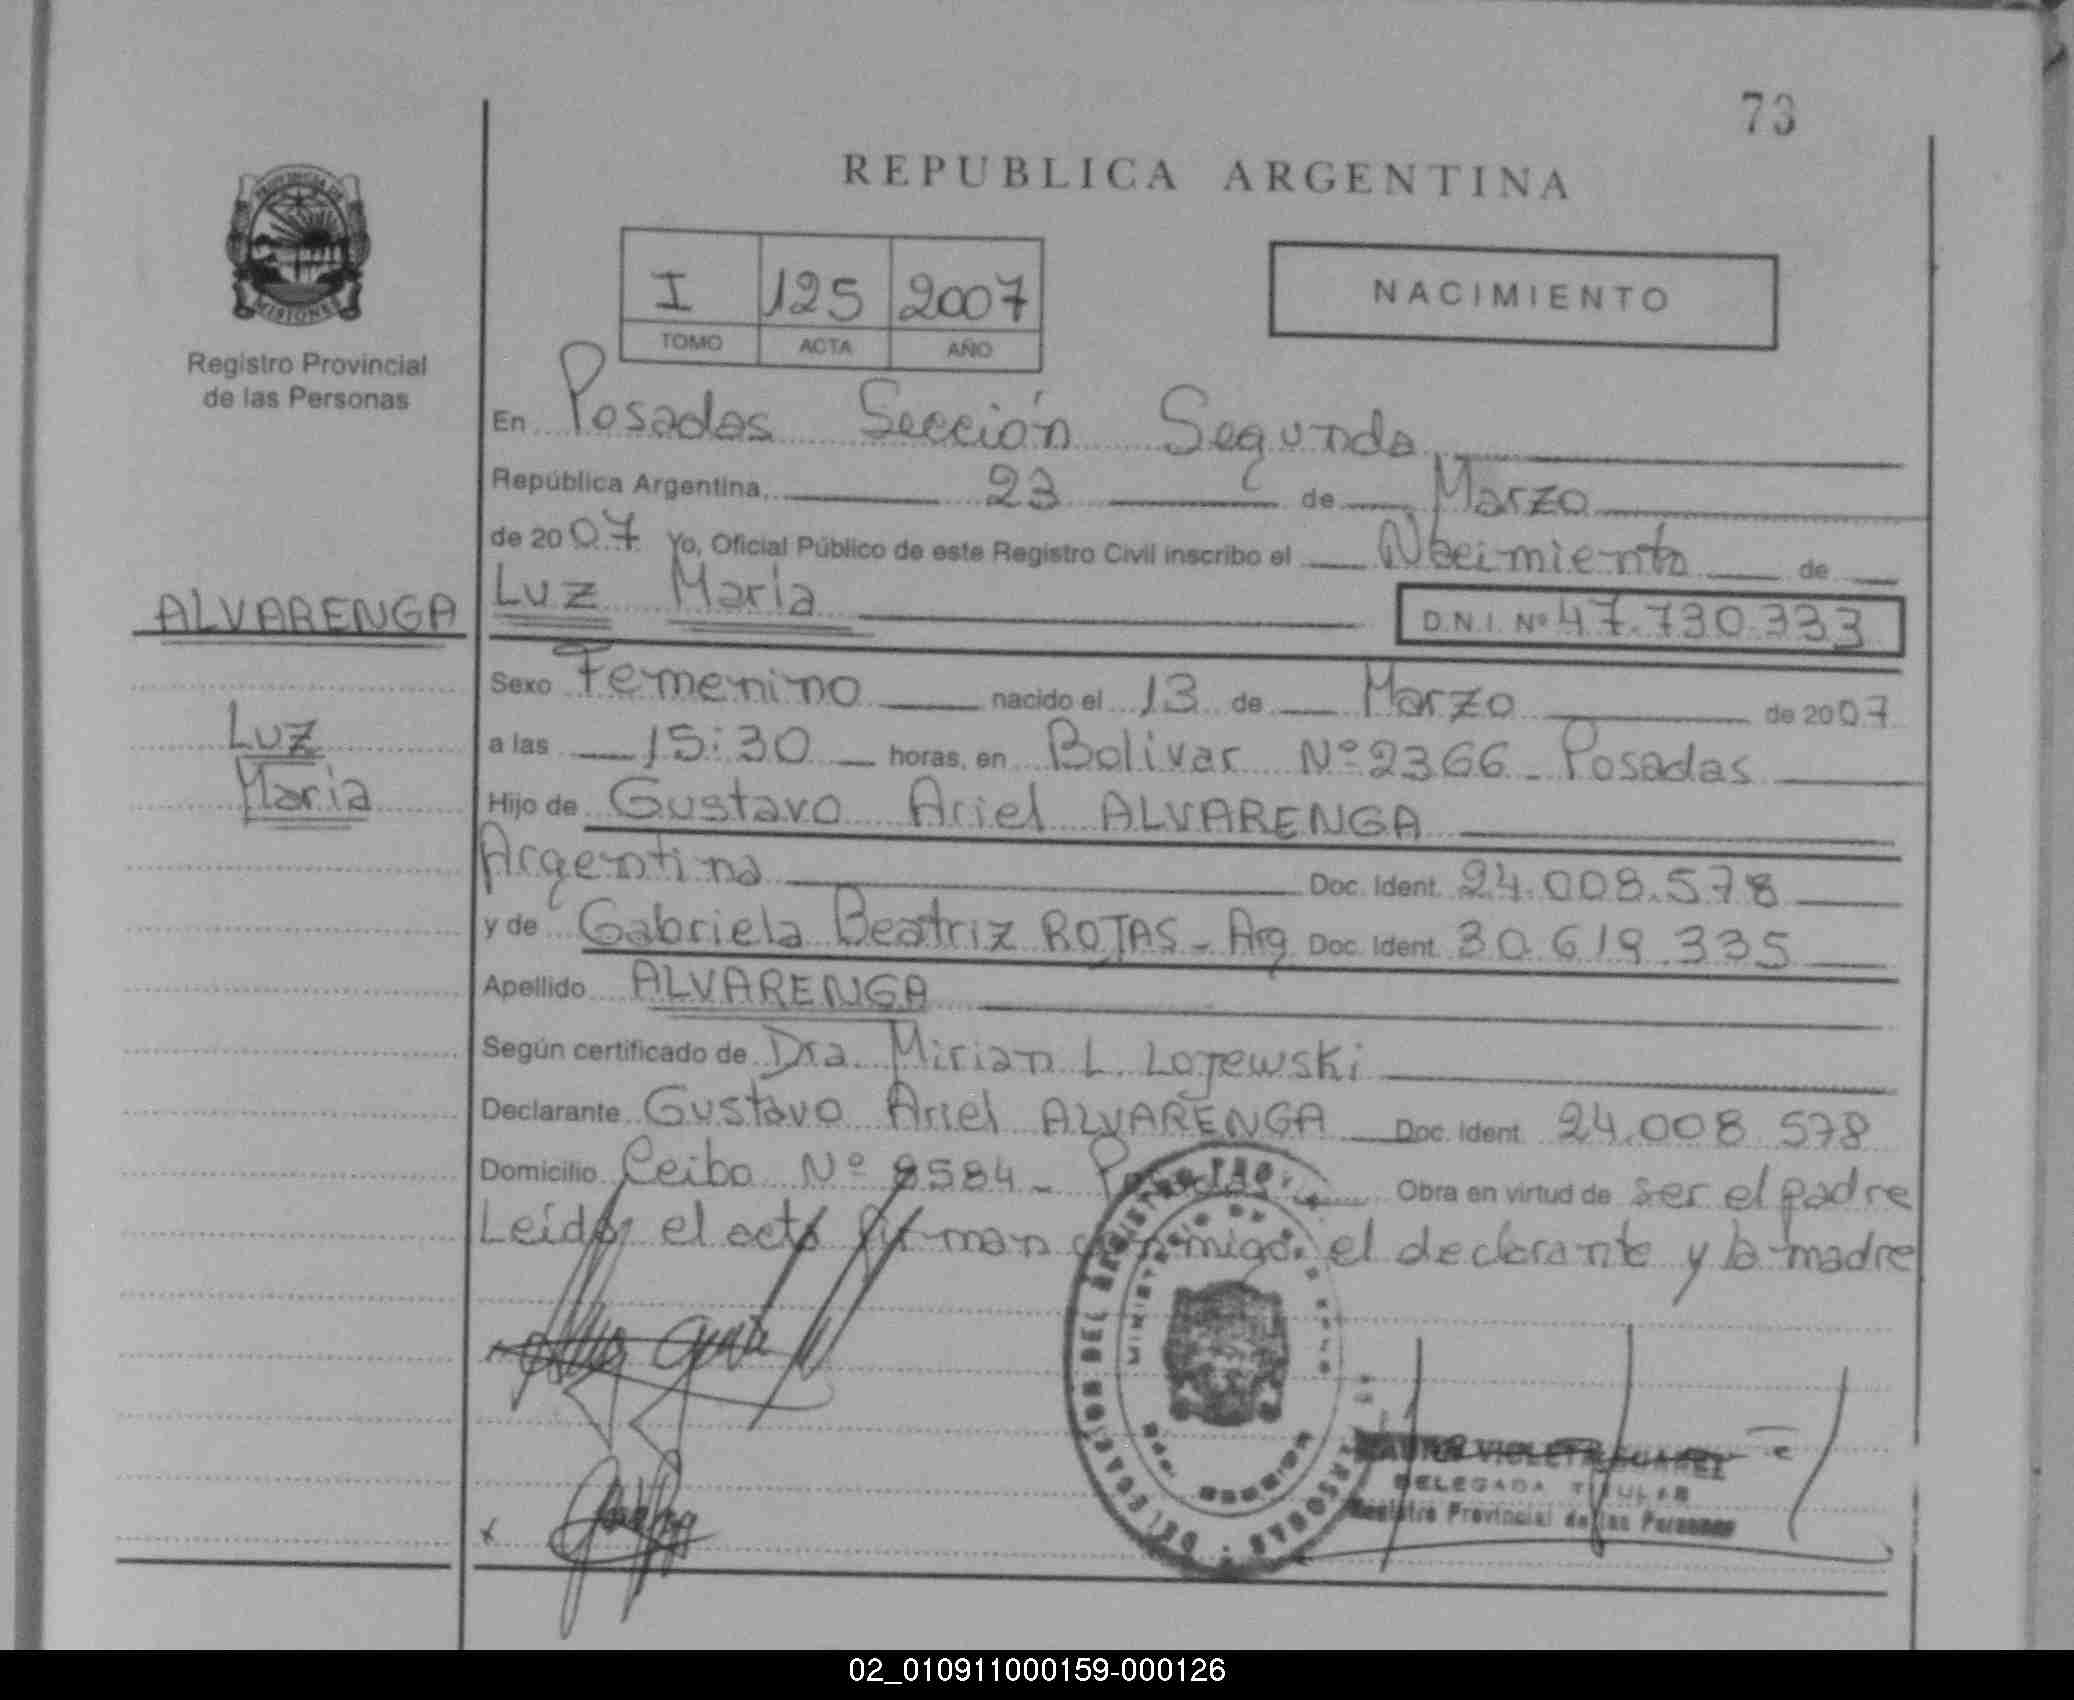 73
REPUBLICA ARGENTINA
PROVINCIA DE
MISIONES
Registro Provincial
de las Personas
I 125 2007
TOMO ACTA AÑO
NACIMIENTO
En Posadas Sección Segunda
República Argentina, 23 de Marzo
de 2007 Yo, Oficial Público de este Registro Civil inscribo el Nacimiento de
ALVARENGA
Luz María
D.N.I. Nº 47.730.333
Luz
María
Sexo Femenino nacido el 13 de Marzo de 2007
a las 15:30 horas, en Bolivar Nº 2366 - Posadas
Hijo de Gustavo Ariel ALVARENGA
Argentina Doc. Ident. 24.008.578
y de Gabriela Beatriz ROJAS - Arg Doc. Ident. 30.619.335
Apellido ALVARENGA
Según certificado de Dra. Mirian L. Lojewski
Declarante Gustavo Ariel ALVARENGA Doc. Ident. 24.008.578
Domicilio Ceibo Nº 8584 - Posadas Obra en virtud de ser el padre
Leído el acto firman conmigo el declarante y la madre
VIOLETA SUAREZ
DELEGADA TITULAR
Registro Provincial de las Personas
02_010911000159-000126